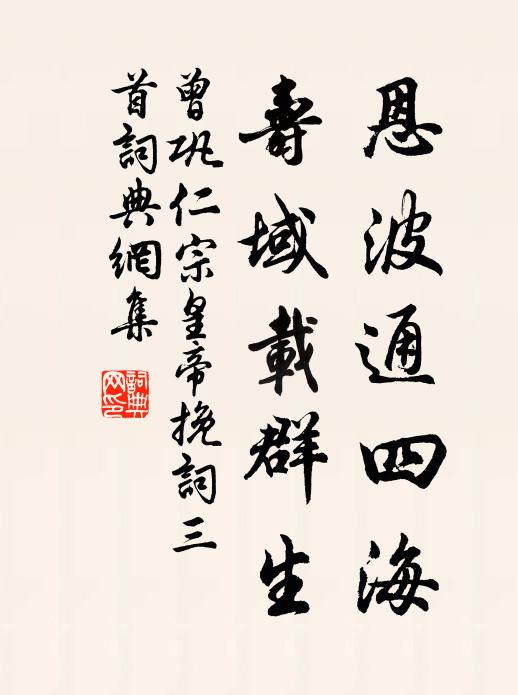 恩波通四海
壽域載群生
曾巩仁宗皇帝挽詞三
首詞典網集
詞典
网印